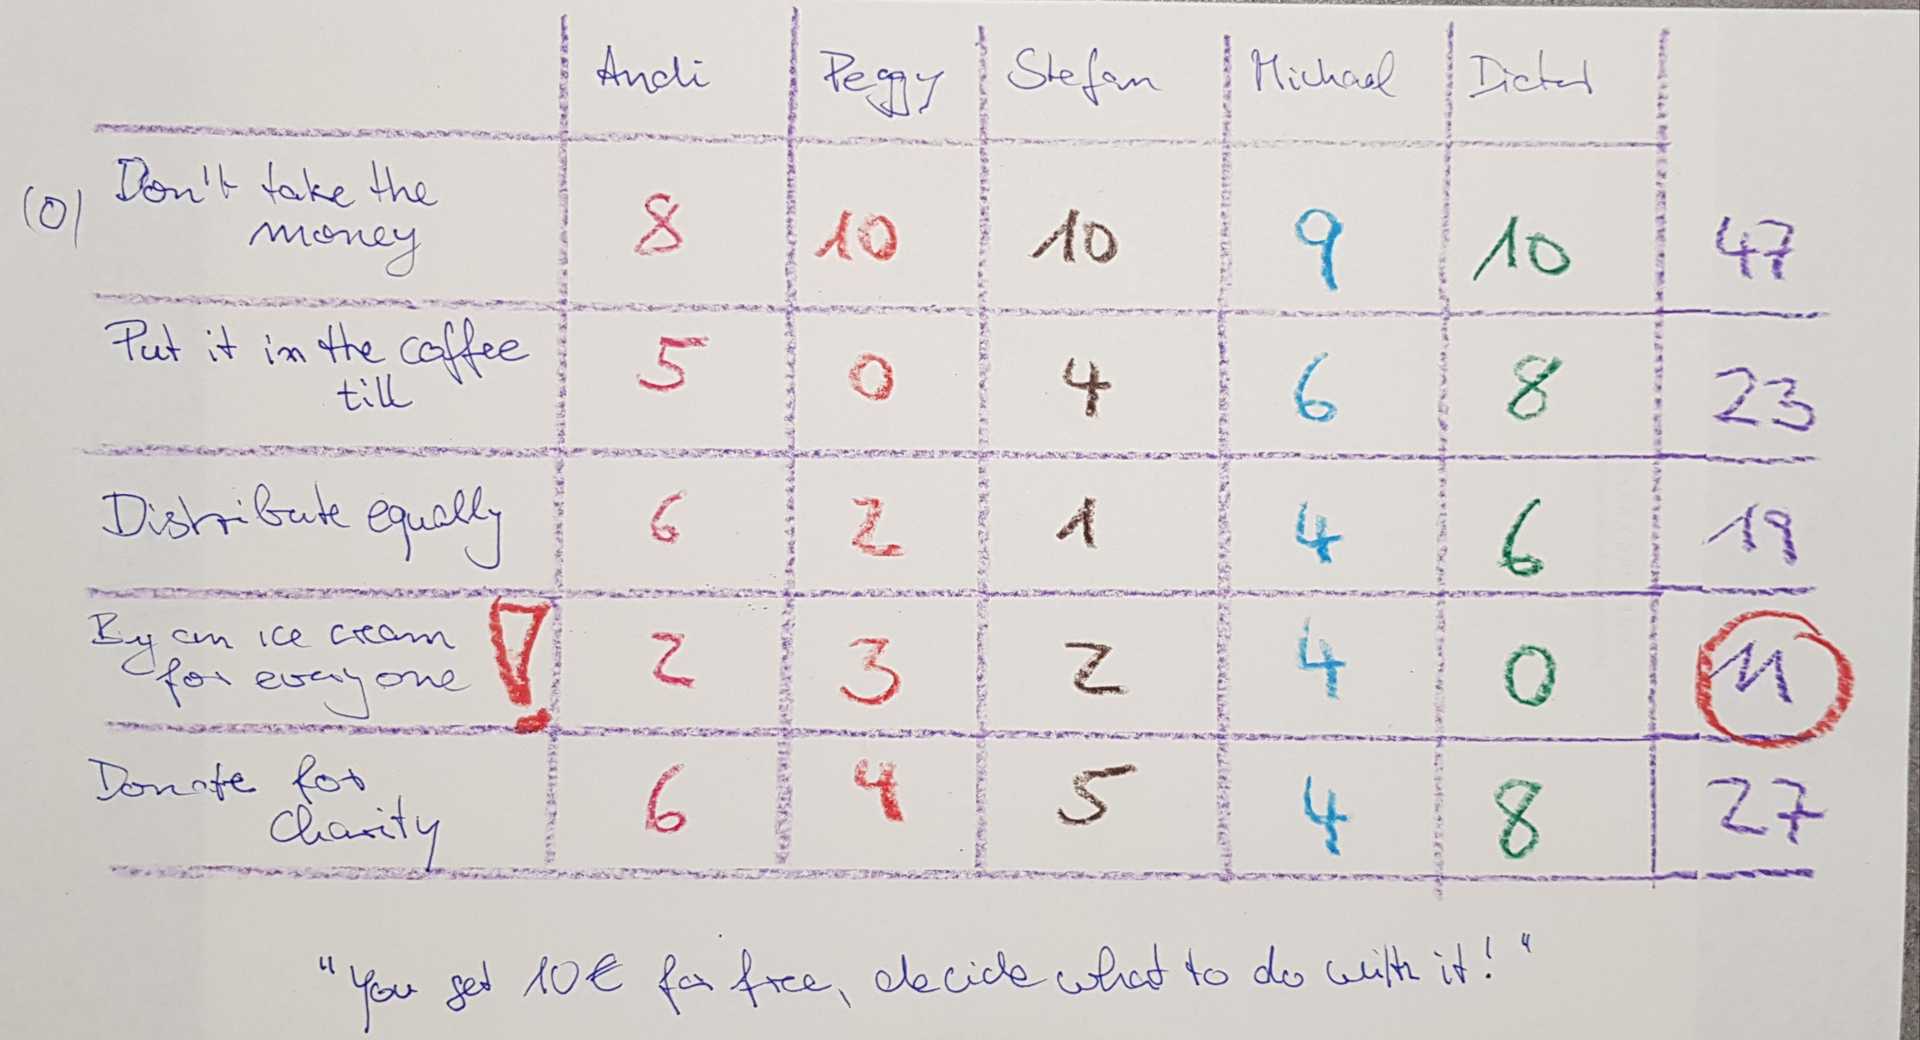 Andi Peggy Stefan Michael Dieter
(0) Don't take the
money 8 10 10 9 10 47
Put it in the coffee
till 5 0 4 6 8 23
Distribute equally 6 2 1 4 6 19
By an ice cream
for everyone ! 2 3 2 4 0 11
Donate for
Charity 6 4 5 4 8 27
"You get 10€ for free, decide what to do with it!"